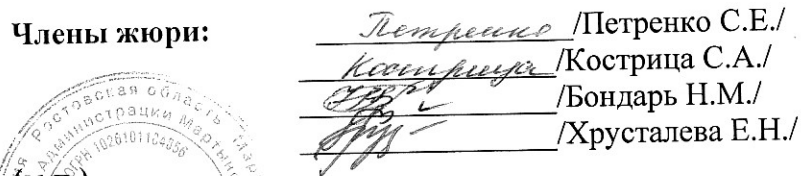 Члены жюри: Петренко /Петренко С.Е./
Кострица /Кострица С.А./
/Бондарь Н.М./
/Хрусталева Е.Н./
Ростовская область
Администрации
ОГРН 1026101104056